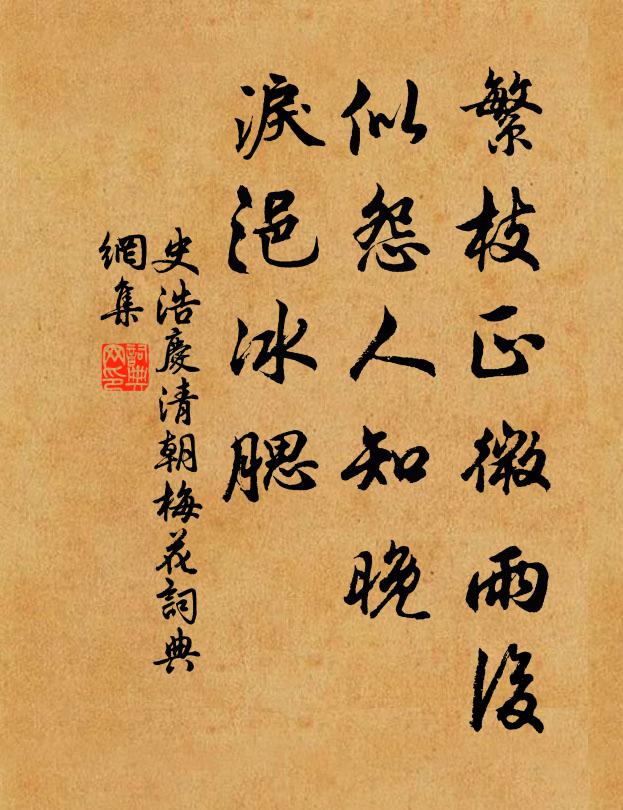 繁枝正微雨後
似怨人知晚
淚浥冰腮
史浩慶清朝梅花詞典
網集
詞典
网印